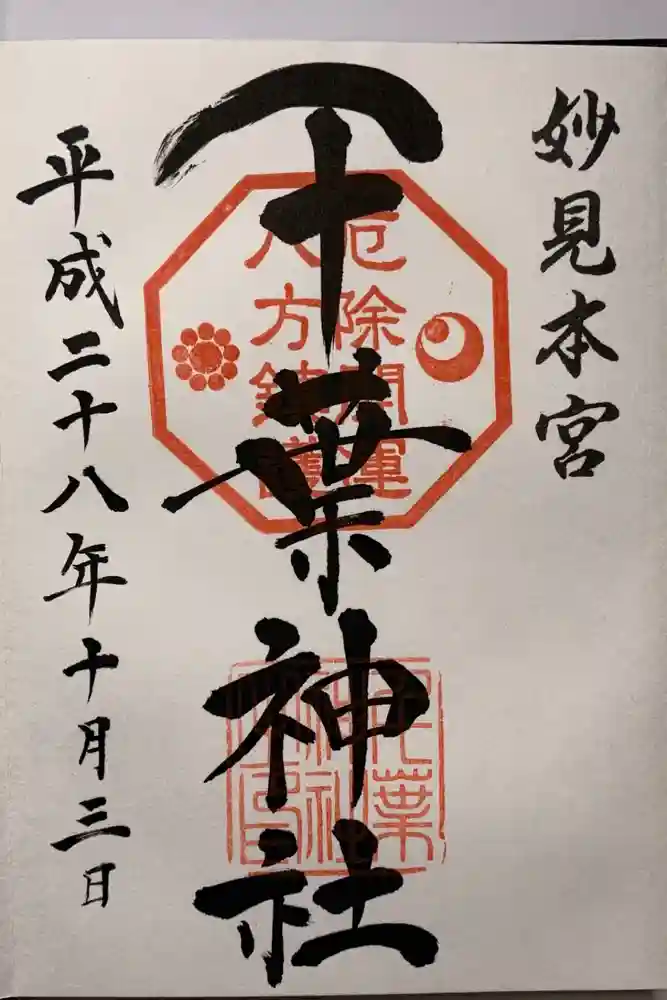 妙見本宮
千葉神社
厄除開運
八方鎮護
千葉
神社
平成二十八年十月三日